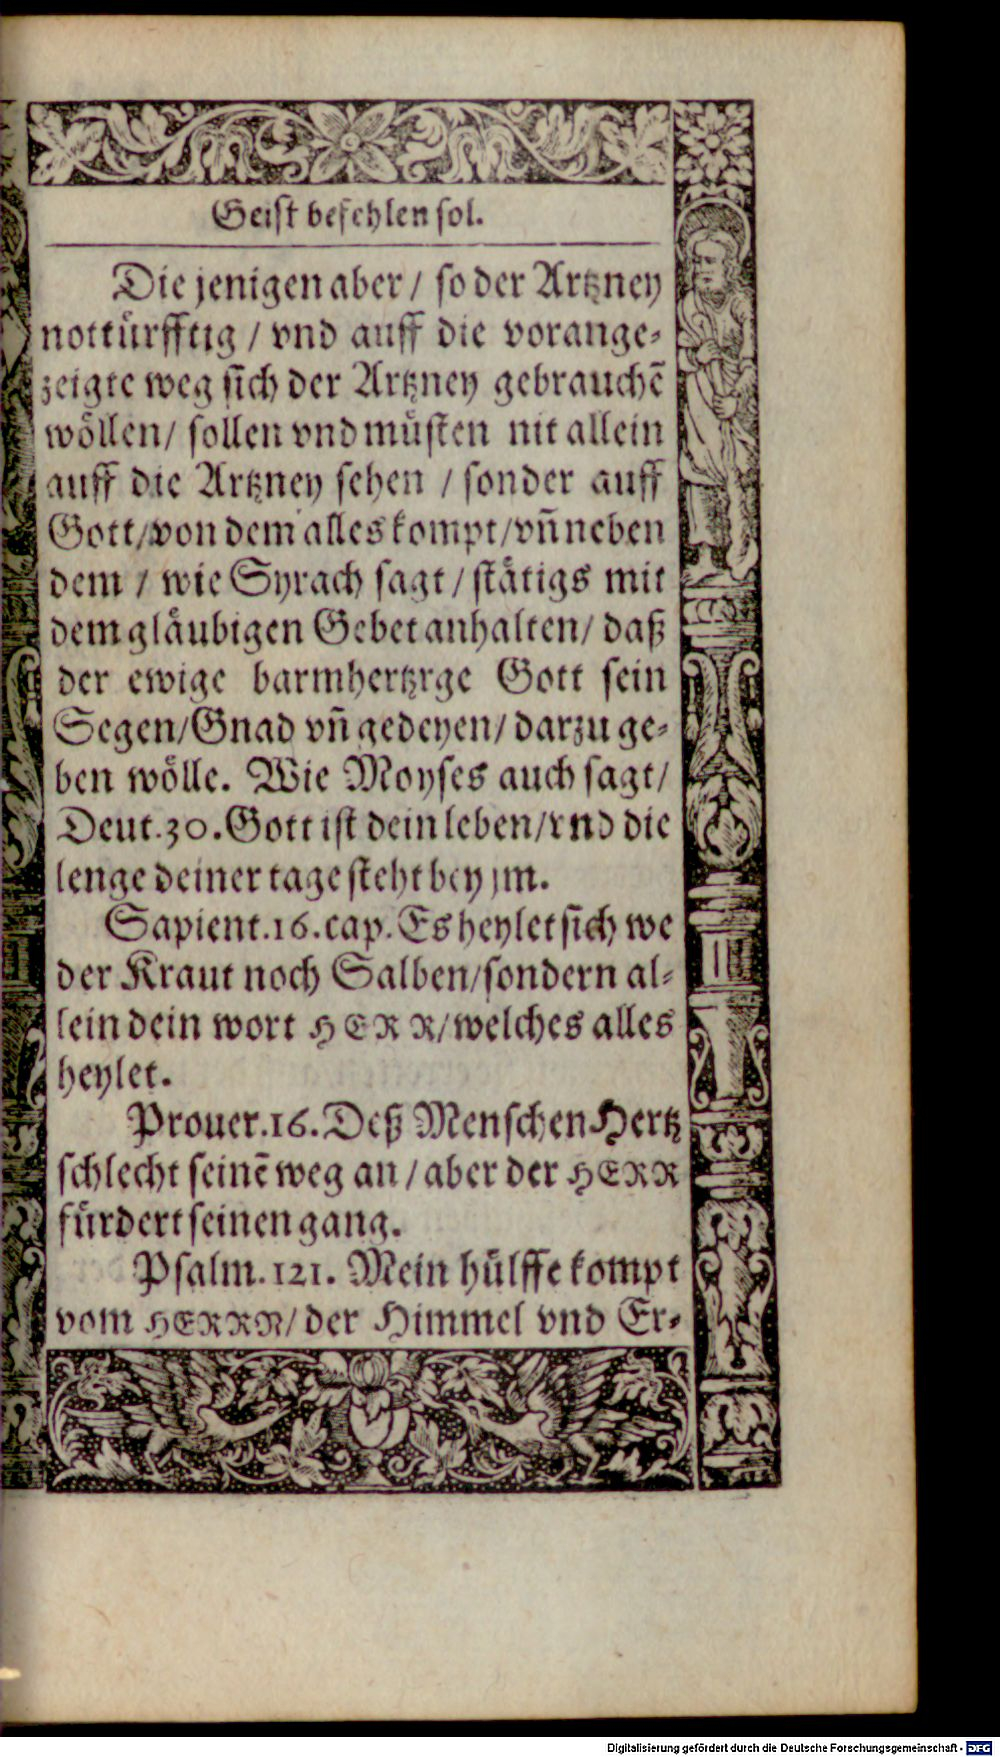 Geist befehlen sol.
Die jenigen aber / so der Artzney
nottürfftig / vnd auff die vorange-
zeigte weg sich der Artzney gebrauchē
wöllen / sollen vnd müsten nit allein
auff die Artzney sehen / sonder auff
Gott / von dem alles kompt / vn̄ neben
dem / wie Syrach sagt / stätigs mit
dem gläubigen Gebet anhalten / daß
der ewige barmhertzrge Gott sein
Segen / Gnad vn̄ gedeyen / darzu ge-
ben wölle. Wie Moyses auch sagt /
Deut. 30. Gott ist dein leben / vnd die
lenge deiner tage steht bey jm.
Sapient. 16. cap. Es heylet sich we
der Kraut noch Salben / sondern al-
lein dein wort HERR / welches alles
heylet.
Prouer. 16. Deß Menschen Hertz
schlecht seinē weg an / aber der HERR
fürdert seinen gang.
Psalm. 121. Mein hülffe kompt
vom HERRN / der Himmel vnd Er-
Digitalisierung gefördert durch die Deutsche Forschungsgemeinschaft - DFG